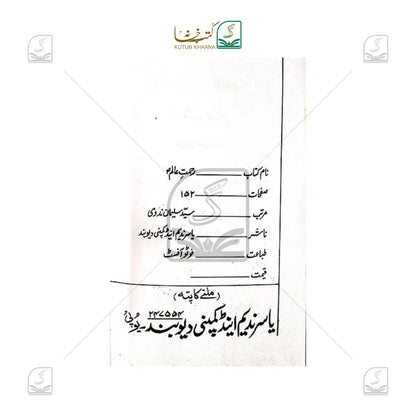 کتب خانہ
KUTUB KHAANA
نام کتاب ــــــــ رحمتِ عالمؐ
صفحات ــــــــ ۱۵۲
مرتب ــــــــ سید سلیمان ندوی
ناشر ــــــــ یاسر ندیم اینڈ کمپنی دیوبند
طباعت ــــــــ فوٹو آفسٹ
قیمت ــــــــ
(ملنے کا پتہ)
یاسر ندیم اینڈ کمپنی دیوبند ۲۴۷۵۵۴ یوپی